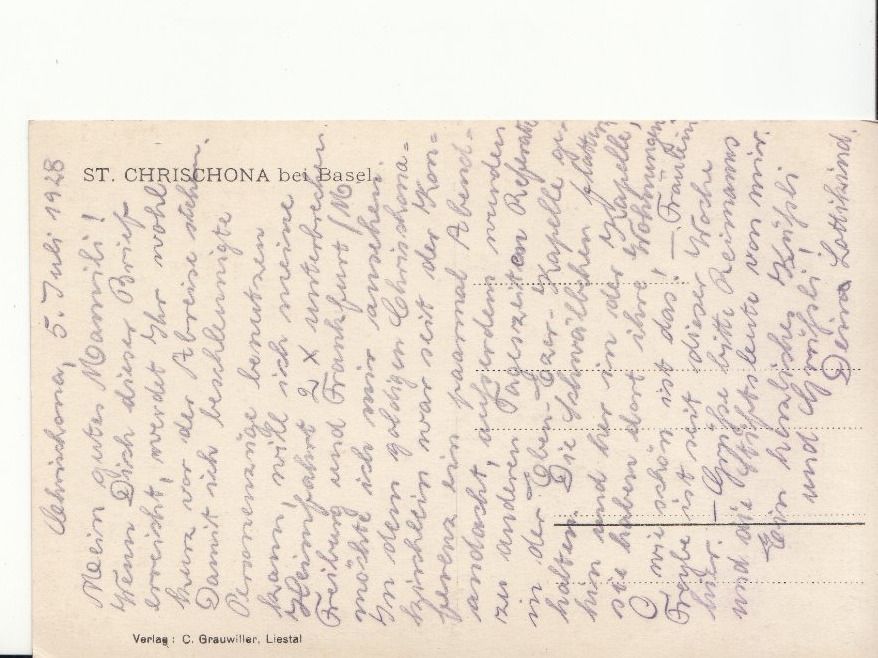 ST. CHRISCHONA bei Basel.
Chrischona, 5. Juli 1928
Mein gutes Mamili!
Wenn Dich dieser Brief
erreicht, werdet Ihr wohl
kurz vor der Abreise stehen.
Damit ich beschleunigte
Personenzüge benutzen
kann, will ich meine
Heimfahrt 2 x unterbrechen
Freiburg und Frankfurt /M
möchte ich mir ansehen.
In dem goldigen Chrischona-
kirchlein war seit der Kon-
ferenz ein paarmal Abend-
andacht, außerdem wurden
zu anderen Tageszeiten Referate
in der Eben-Ezer-Kapelle ge-
halten. Die Schwälbchen flattern
hin und her in der Kapelle,
sie haben dort ihre Wohnungen
O wie schön ist das! – Fräulein
Freybe ist seit dieser Woche
hier. – Grüße bitte Reimanns
und die Stiftsleute von mir.
Ein herzliches Küßli
und Grüßli!
Deine Lottikind.
Verlag: C. Grauwiller, Liestal